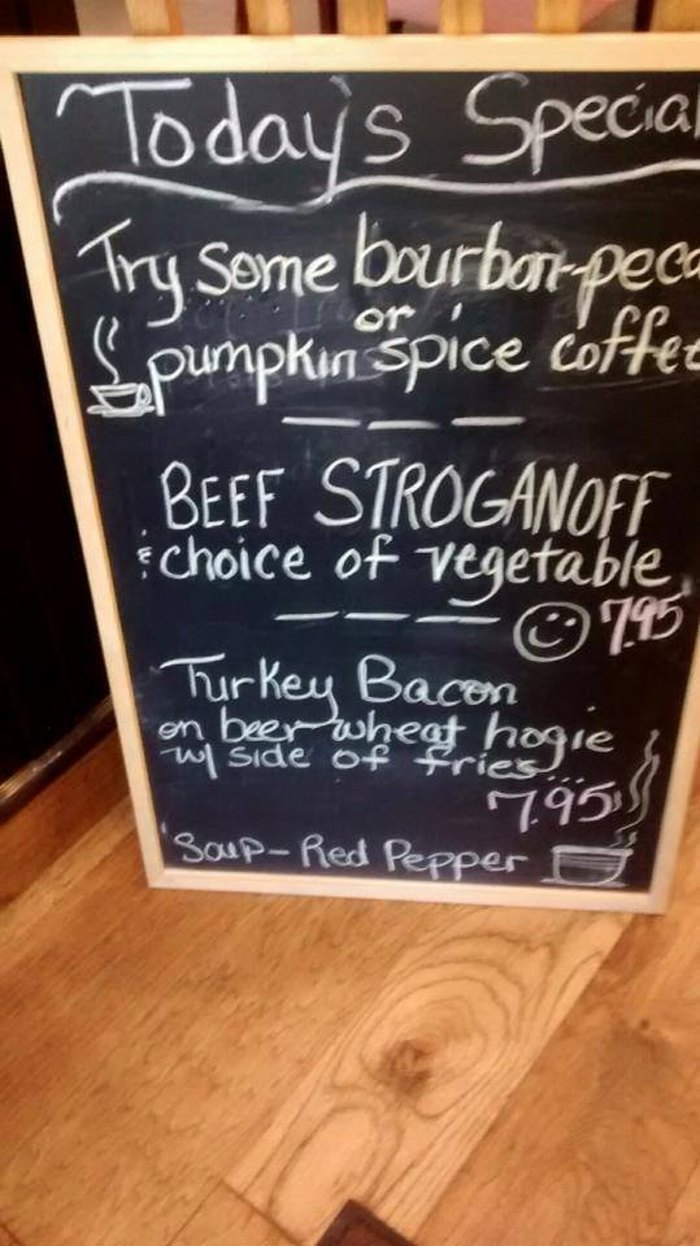 Today's Special
Try some bourbon-peca
or
pumpkin spice coffee
BEEF STROGANOFF
& choice of vegetable
7.95
Turkey Bacon
on beer wheat hogie
w/ side of fries...
7.95
Soup - Red Pepper